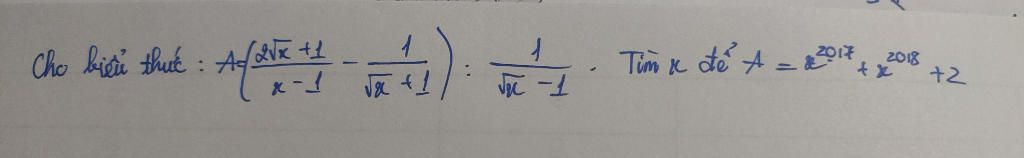 Cho biểu thức : A=(\frac{2\sqrt{x}+1}{x-1} - \frac{1}{\sqrt{x}+1}) : \frac{1}{\sqrt{x}-1} . Tìm x để A = x^{2017} + x^{2018} + 2